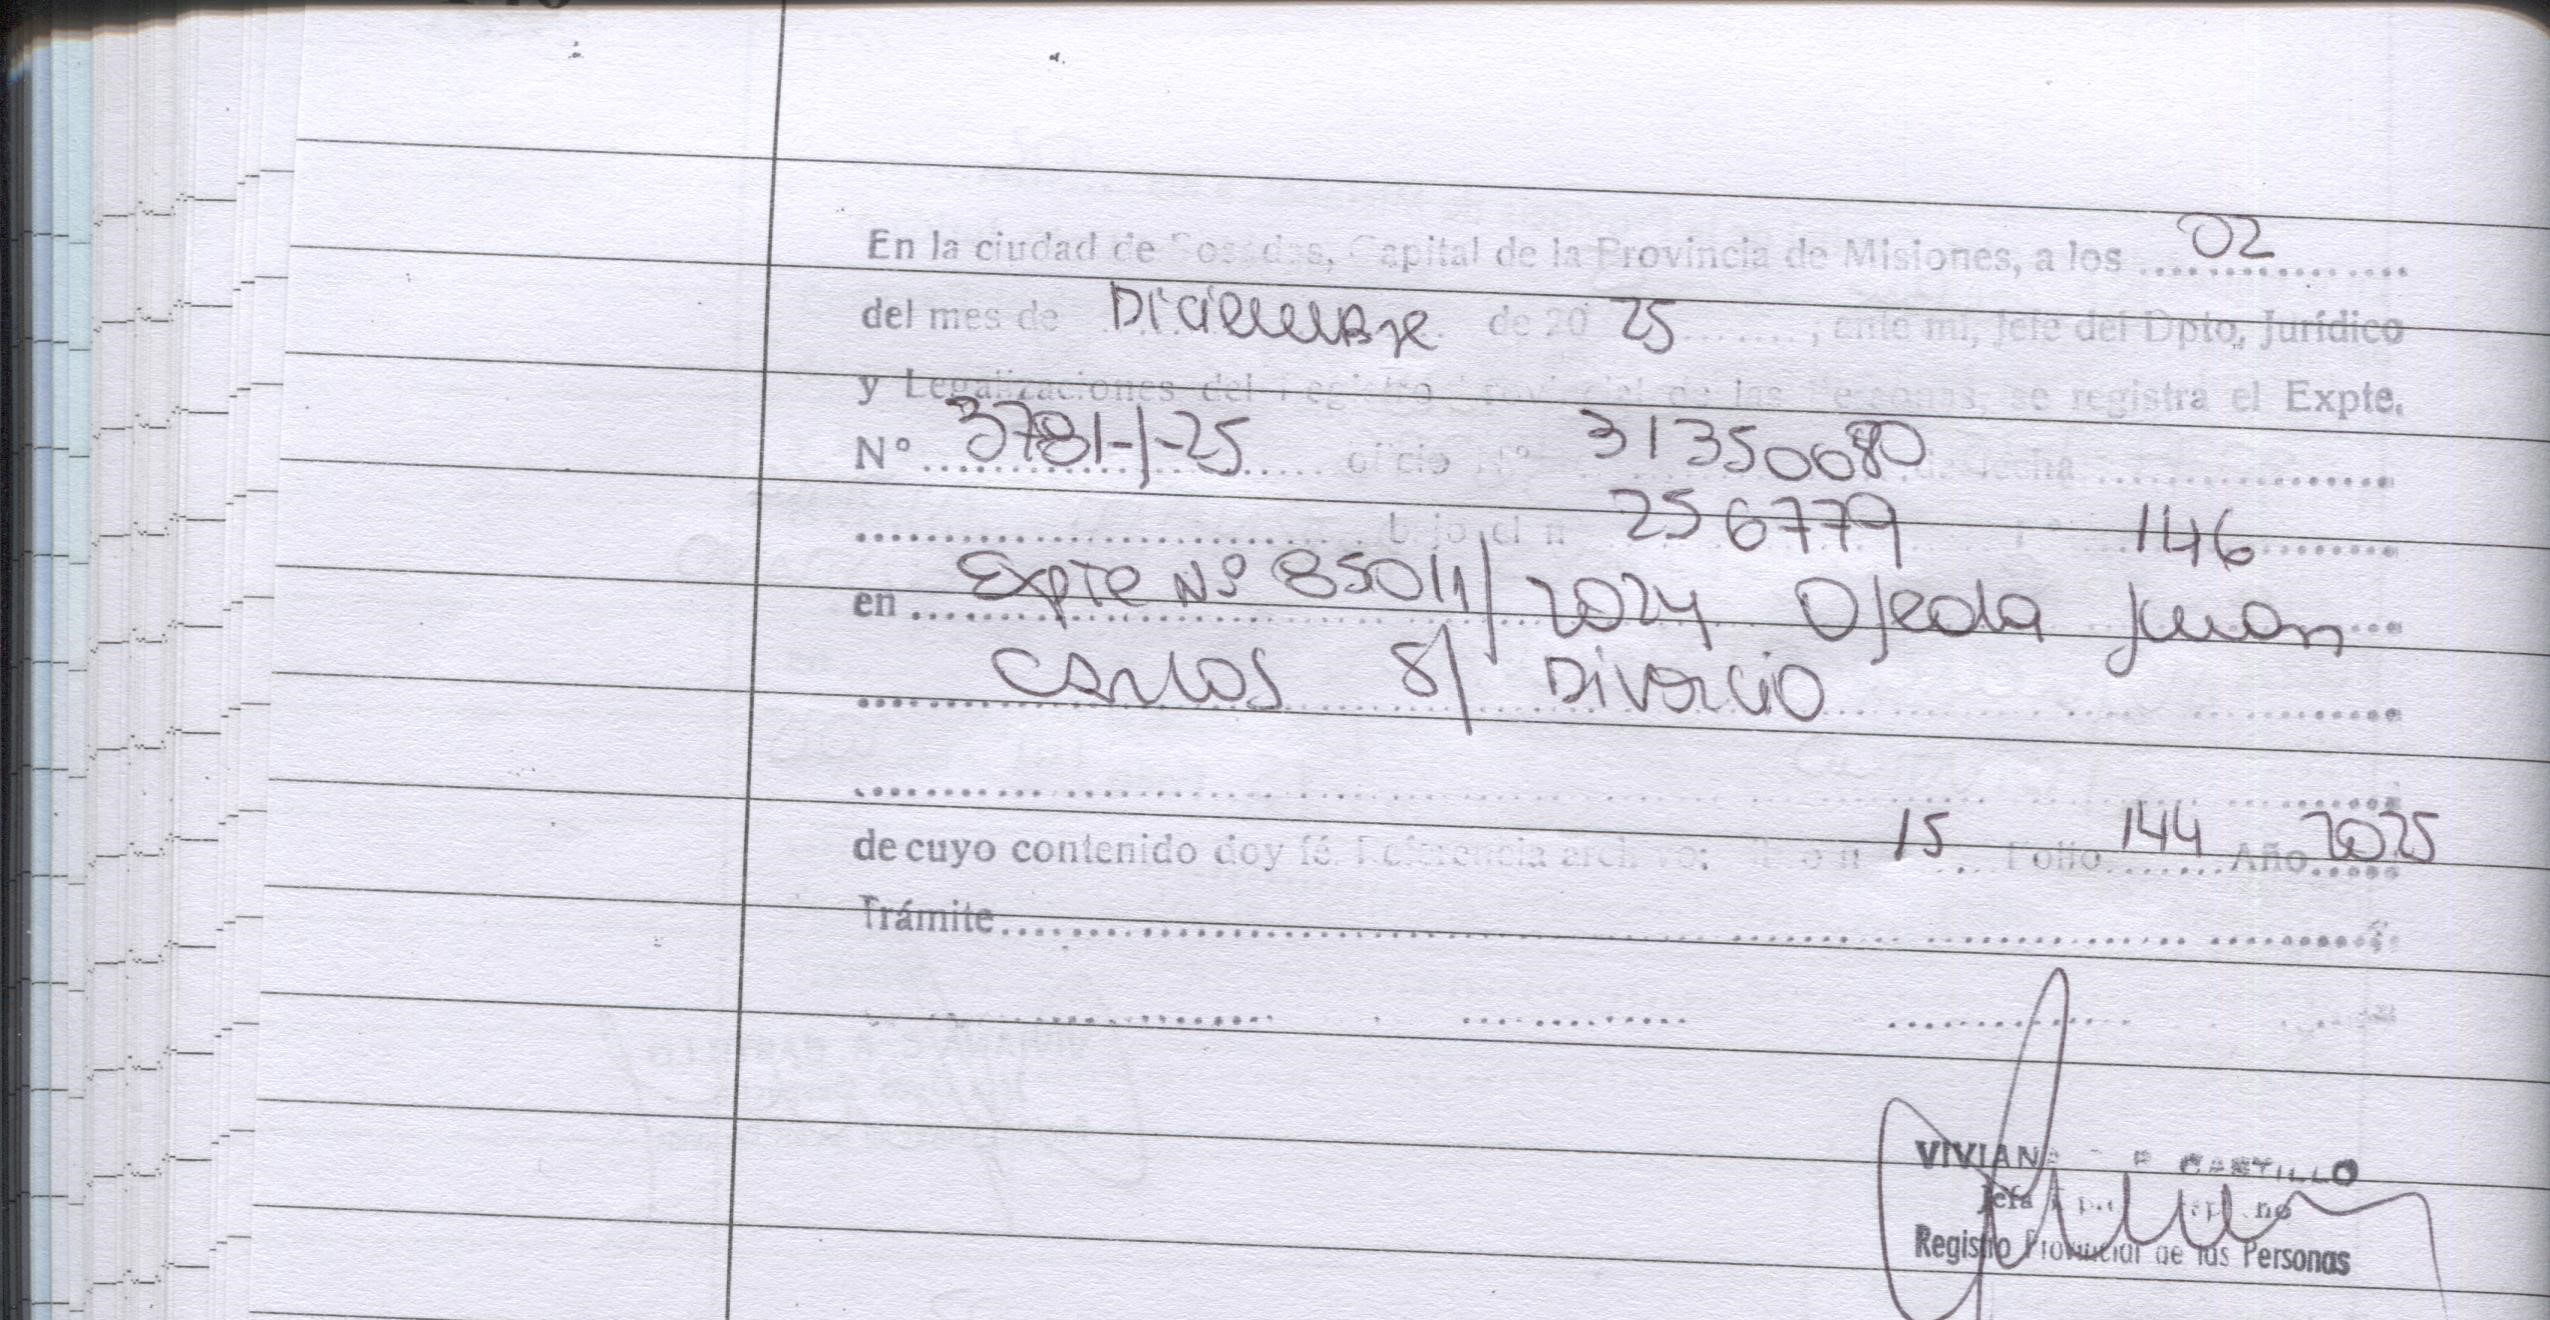 En la ciudad de Posadas, Capital de la Provincia de Misiones, a los 02
del mes de Diciembre de 20 25, ante mi, Jefe del Dpto. Jurídico
y Legalizaciones del Registro Provincial de las Personas, se registra el Expte.
Nº 3781-1-25 oficio Nº 31350080 de fecha
bajo el n 256779 146
en Expte Nº 85011/2024 Ojeda Juan
Carlos S/ Divorcio
de cuyo contenido doy fé. Referencia archivo: 15 Folio 144 Año 2025
Trámite
VIVIANA CASTILLO
Jefa
Registro Provincial de las Personas